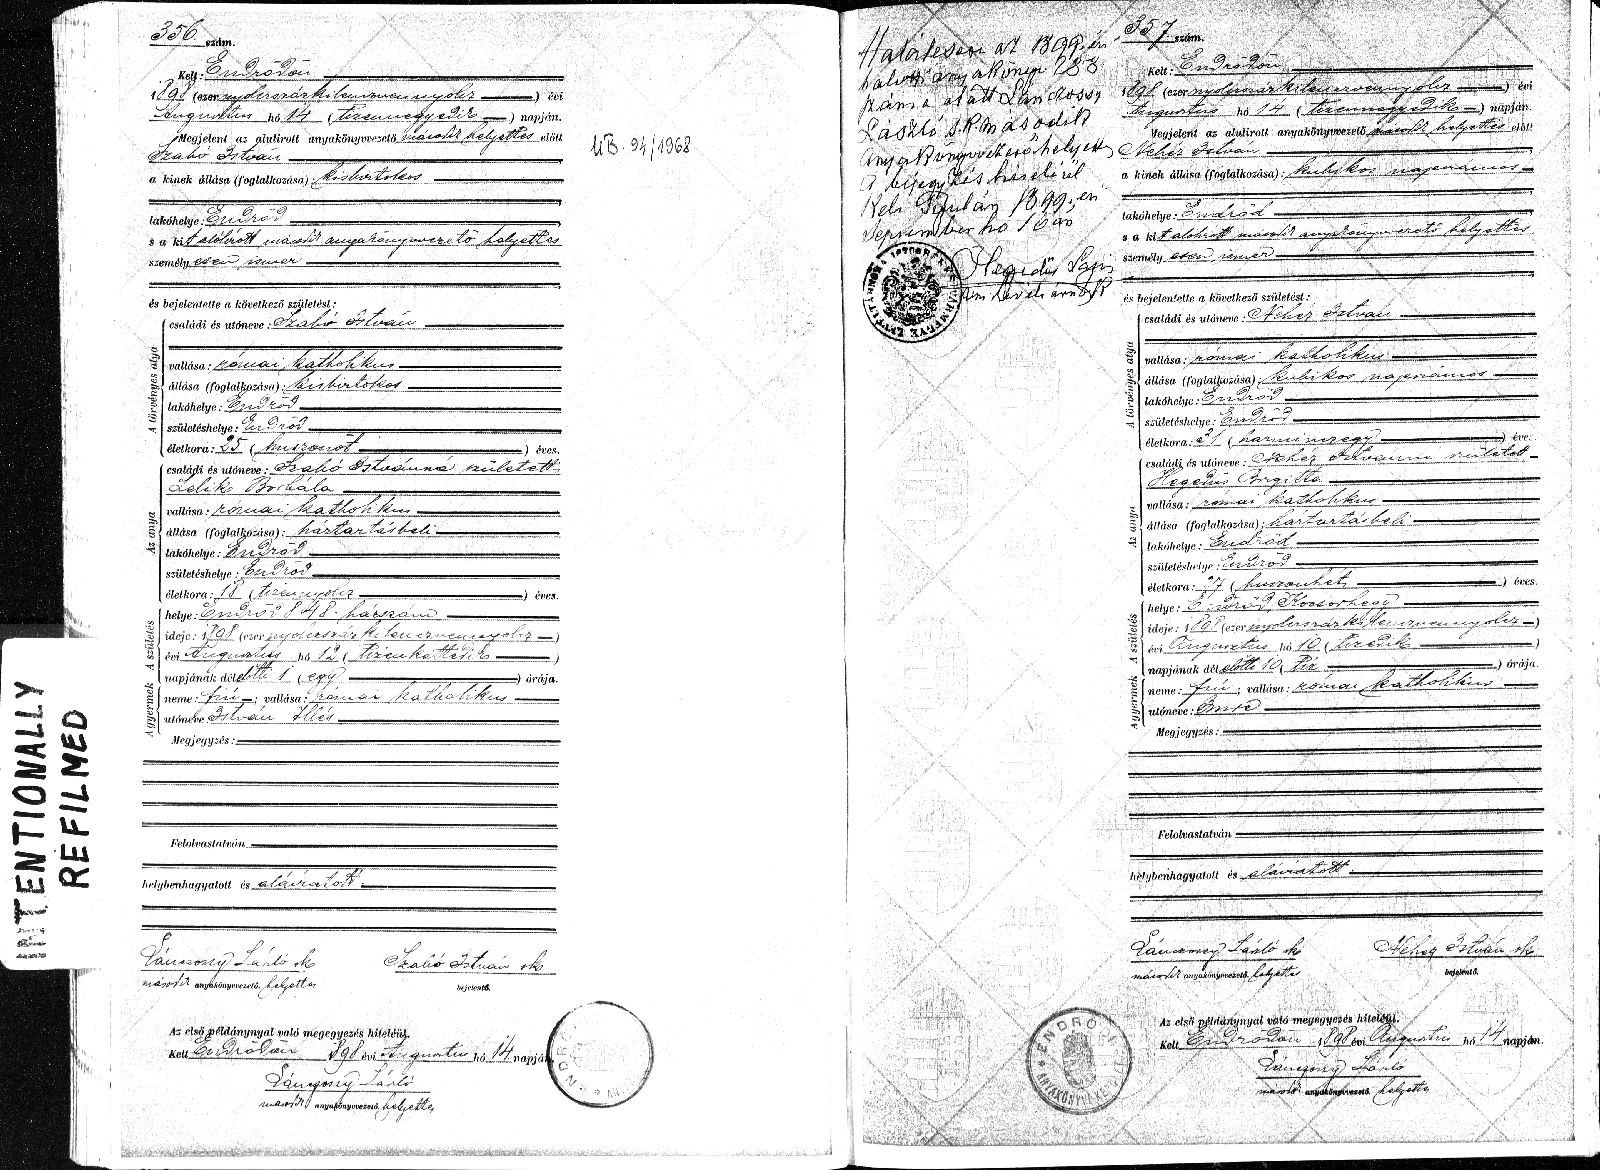 INTENTIONALLY
REFILMED
356 szám.
Kelt: Endrődön
1898 (ezernyolczszázkilenczvennyolcz) évi
Augusztus hó 14 (tizennegyedik) napján.
Megjelent az alulirott anyakönyvvezető második helyettes előtt
Szabó István
a kinek állása (foglalkozása): kisbirtokos
lakóhelye: Endrőd
s a kit alólirott második anyakönyvvezető helyettes
személyesen ismer
és bejelentette a következő születést:
A törvényes atya
családi és utóneve: Szabó István
vallása: római katholikus
állása (foglalkozása): kisbirtokos
lakóhelye: Endrőd
születéshelye: Endrőd
életkora: 25 (huszonöt) éves.
Az anya
családi és utóneve: Szabó Istvánná született
Lelik Borbála
vallása: római katholikus
állása (foglalkozása): háztartásbeli
lakóhelye: Endrőd
születéshelye: Endrőd
életkora: 18 (tizennyolcz) éves.
A születés
helye: Endrőd 848. házszám
ideje: 1898 (ezernyolczszázkilenczvennyolcz)
évi Augusztus hó 12 (tizenkettedik)
napjának délelőtti 1 (egy) órája.
A gyermek
neme: fiú; vallása: római katholikus
utóneve István Illés
Megjegyzés:
Felolvastatván
helybenhagyatott és aláiratott
Lánczossy László sk
második anyakönyvvezető. helyettes
Szabó István sk
bejelentő.
Az első példánynyal való megegyezés hiteléül.
Kelt Endrődön 1898 évi Augusztus hó 14 napján
Lánczossy László
második anyakönyvvezető. helyettes
UB. 94/1968
Határtesen az 1899. évi
halotti anyakönyv 233
száma alatt Lánczossy
László s.k. második
anyakönyvvezető helyettes
A bejegyzés hiteléül
Kelt Gyulán 1899. évi
September hó 16 án
Hegedűs
357 szám.
Kelt: Endrődön
1898 (ezernyolczszázkilenczvennyolcz) évi
Augusztus hó 14 (tizennegyedik) napján.
Megjelent az alulirott anyakönyvvezető második helyettes előtt
Nehéz István
a kinek állása (foglalkozása): kubikos napszámos
lakóhelye: Endrőd
s a kit alólirott második anyakönyvvezető helyettes
személyesen ismer
és bejelentette a következő születést:
A törvényes atya
családi és utóneve: Nehéz István
vallása: római katholikus
állása (foglalkozása): kubikos napszámos
lakóhelye: Endrőd
születéshelye: Endrőd
életkora: 31 (harminczegy) éves.
Az anya
családi és utóneve: Nehéz Istvánná született
Hegedűs Brigitta
vallása: római katholikus
állása (foglalkozása): háztartásbeli
lakóhelye: Endrőd
születéshelye: Endrőd
életkora: 27 (huszonhét) éves.
A születés
helye: Endrőd, Kocsorhegy
ideje: 1898 (ezernyolczszázkilenczvennyolcz)
évi Augusztus hó 10 (tizedik)
napjának délelőtti 10 (tíz) órája.
A gyermek
neme: fiú; vallása: római katholikus
utóneve: Imre
Megjegyzés:
Felolvastatván
helybenhagyatott és aláiratott
Lánczossy László sk
második anyakönyvvezető. helyettes
Nehéz István sk
bejelentő.
ENDRŐD
Az első példánynyal való megegyezés hiteléül.
Kelt Endrődön 1898 évi Augusztus hó 14 napján.
Lánczossy László
második anyakönyvvezető. helyettes